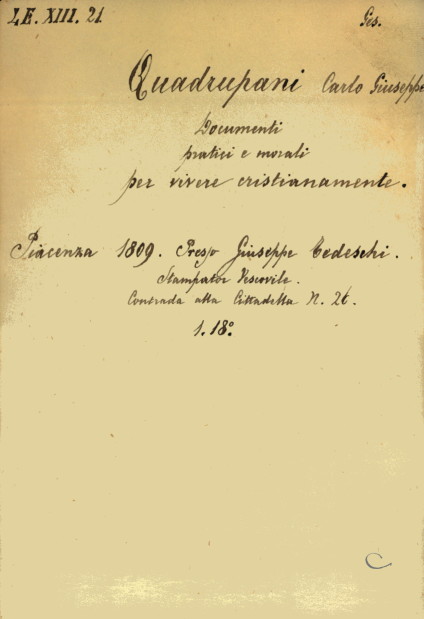 I.E. XIII. 21
Ges.
Quadrupani Carlo Giuseppe
Documenti
pratici e morali
per vivere cristianamente.
Piacenza 1809. Presso Giuseppe Tedeschi.
Stampator Vescovile.
Contrada alla Cittadella N. 26.
1. 18º
C